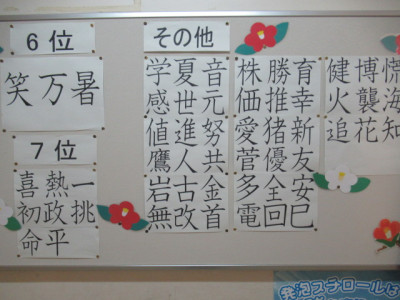 6位
笑万暑
7位
喜熱一
初政挑
命平
その他
学夏音
感世元
値進努
鷹人共
岩古金
無改首
株勝育
価推幸
愛猪新
菅優友
多全安
電回巳
健博慌
火襲海
追花知
発泡スチロールは